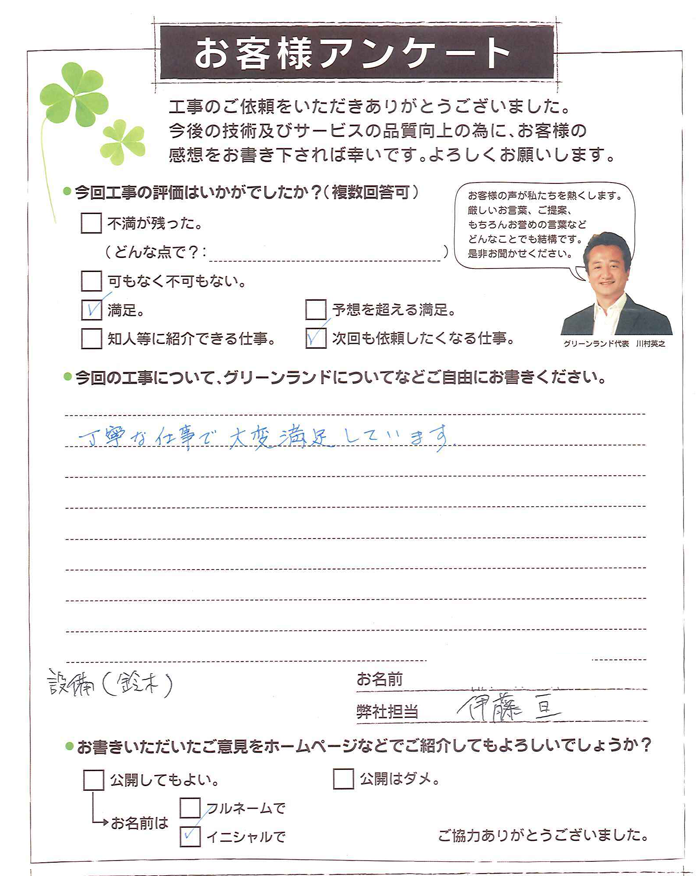 お客様アンケート
工事のご依頼をいただきありがとうございました。
今後の技術及びサービスの品質向上の為に、お客様の
感想をお書き下されば幸いです。よろしくお願いします。
●今回工事の評価はいかがでしたか？（複数回答可）
不満が残った。
（どんな点で？：　）
可もなく不可もない。
満足。
予想を超える満足。
知人等に紹介できる仕事。
次回も依頼したくなる仕事。
お客様の声が私たちを熱くします。
厳しいお言葉、ご提案、
もちろんお誉めの言葉など
どんなことでも結構です。
是非お聞かせください。
グリーンランド代表　川村英之
●今回の工事について、グリーンランドについてなどご自由にお書きください。
丁寧な仕事で大変満足しています
設備（鈴木）
お名前
弊社担当　伊藤 亘
●お書きいただいたご意見をホームページなどでご紹介してもよろしいでしょうか？
公開してもよい。
公開はダメ。
お名前は
フルネームで
イニシャルで
ご協力ありがとうございました。